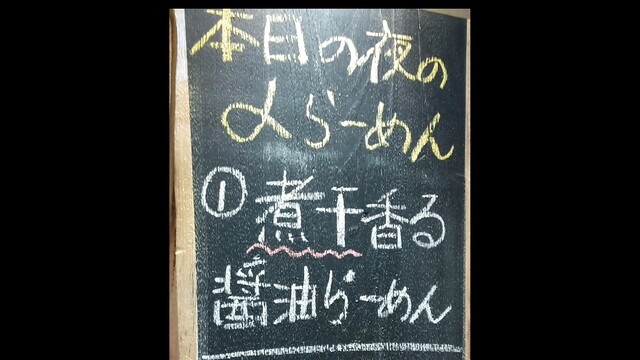 本日の夜の
αらーめん
① 煮干香る
醤油らーめん